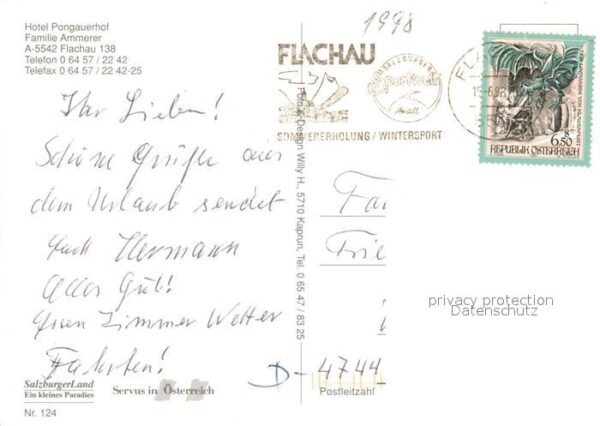 Hotel Pongauerhof
Familie Ammerer
A-5542 Flachau 138
Telefon 0 64 57 / 22 42
Telefax 0 64 57 / 22 42-25
1998
FLACHAU
SALZBURGER
Sportwelt
SOMMERERHOLUNG / WINTERSPORT
6.50
REPUBLIK ÖSTERREICH
Ihr Lieben!
Schöne Grüße aus
dem Urlaub sendet
Hermann
Alles Gut!
Essen Zimmer Wetter
Fahrten!
Foto & Design Willy H., 5710 Kaprun, Tel. 0 65 47 / 83 25
Fa
Frie
privacy protection
Datenschutz
D-4744
Postleitzahl
SalzburgerLand
Ein kleines Paradies
Servus in Österreich
Nr. 124